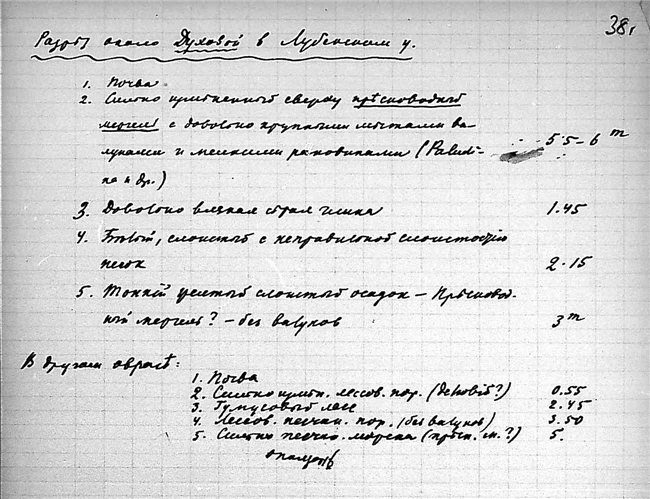 38г
Разрѣз около Духовой в Лубенском у.
1. Почва
2. Сильно измѣненный сверху прѣсноводный
мергель с довольно крупными мѣстами ва-
лунами и мелкими раковинами (Paludi- 5.5-6 m
na и др.)
3. Довольно вязкая сѣрая глина 1.45
4. Бѣлый, слоистый с неправильной слоистостью
песок 2.15
5. Тонкий слоистый осадок – Прѣсновод-
ный мергель? – без валунов 3 m
В другом овраге:
1. Почва
2. Сильно измѣн. лессов. пор. (deluvia?) 0.55
3. Гумусовый лесс 2.45
4. Лессов. песчан. пор. (без валунов) 3.50
5. Сильно песчан. морена (прѣсн. м.?) 5.